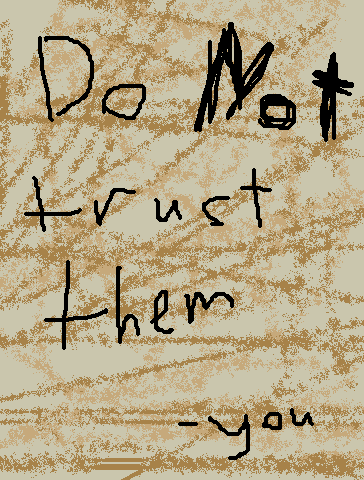 Do Not
trust
them
-you